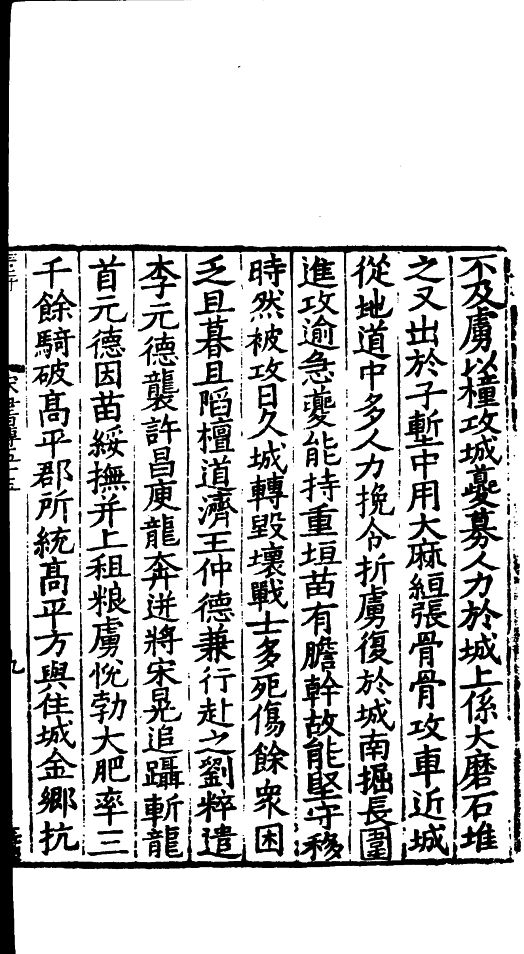 不及虜以橦攻城夔募人力於城上係大磨石堆
之又出於子塹中用大麻絙張骨骨攻車近城
從地道中多人力挽令折虜復於城南掘長圍
進攻逾急夔能持重垣苗有膽幹故能堅守移
時然被攻日久城轉毀壞戰士多死傷餘衆困
乏且暮且陷檀道濟王仲德兼行赴之劉粹遣
李元德襲許昌庾龍奔迸將宋晃追躡斬龍
首元德因苗綏撫并上租粮虜悅勃大肥率三
千餘騎破髙平郡所統髙平方與任城金鄉抗
九